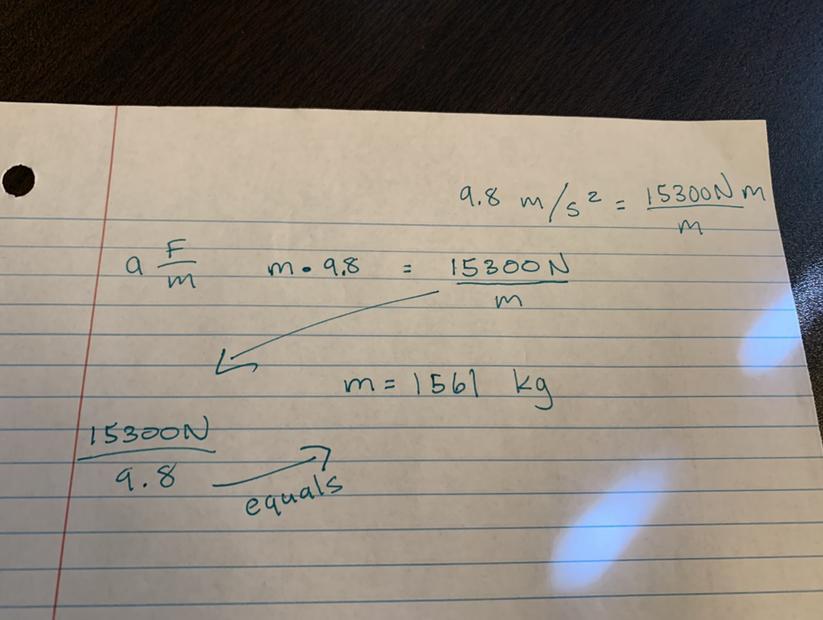 9.8 m/s² = 15300N m
m
a F/m m • 9.8 = 15300N
m
m = 1561 kg
15300N
9.8
equals